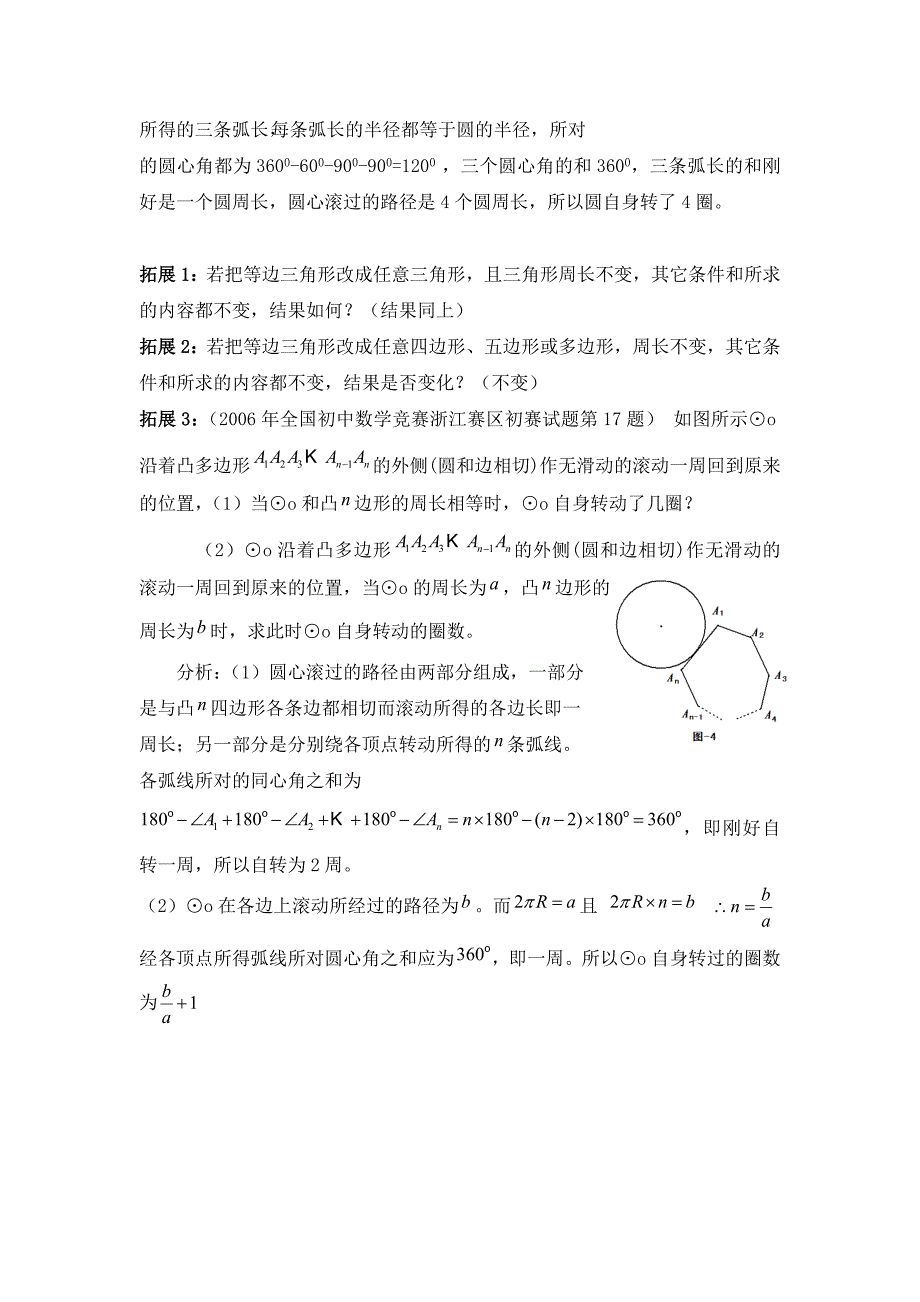 所得的三条弧长每条弧长的半径都等于圆的半径，所对
的圆心角都为360⁰-60⁰-90⁰-90⁰=120⁰ ，三个圆心角的和360⁰，三条弧长的和刚
好是一个圆周长，圆心滚过的路径是4个圆周长，所以圆自身转了4圈。
拓展1：若把等边三角形改成任意三角形，且三角形周长不变，其它条件和所求
的内容都不变，结果如何？（结果同上）
拓展2：若把等边三角形改成任意四边形、五边形或多边形，周长不变，其它条
件和所求的内容都不变，结果是否变化？（不变）
拓展3：（2006年全国初中数学竞赛浙江赛区初赛试题第17题） 如图所示⊙o
沿着凸多边形A₁A₂A₃K Aₙ₋₁Aₙ的外侧(圆和边相切)作无滑动的滚动一周回到原来
的位置，（1）当⊙o和凸n边形的周长相等时，⊙o自身转动了几圈？
（2）⊙o沿着凸多边形A₁A₂A₃K Aₙ₋₁Aₙ的外侧(圆和边相切)作无滑动的
滚动一周回到原来的位置，当⊙o的周长为a，凸n边形的
周长为b时，求此时⊙o自身转动的圈数。
分析：（1）圆心滚过的路径由两部分组成，一部分
是与凸n四边形各条边都相切而滚动所得的各边长即一
周长；另一部分是分别绕各顶点转动所得的n条弧线。
各弧线所对的同心角之和为
180º−∠A₁+180º−∠A₂+K +180º−∠Aₙ=n×180º−(n−2)×180º=360º，即刚好自
转一周，所以自转为2周。
（2）⊙o在各边上滚动所经过的路径为b。而2πR=a且 2πR×n=b ∴n=b/a
经各顶点所得弧线所对圆心角之和应为360º，即一周。所以⊙o自身转过的圈数
为b/a+1
A₁
A₂
A₃
A₄
Aₙ
Aₙ₋₁
图-4